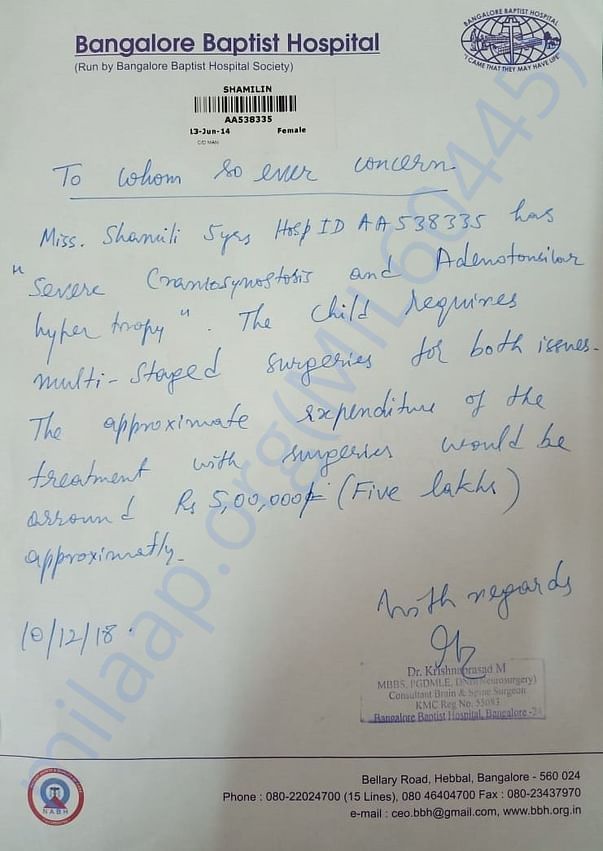 Bangalore Baptist Hospital
(Run by Bangalore Baptist Hospital Society)
BANGALORE BAPTIST HOSPITAL
"I CAME THAT THEY MAY HAVE LIFE"
SHAMILIN
AA538335
13-Jun-14 Female
To whom so ever concern
Miss. Shamili 5yrs Hosp ID AA538335 has
"Severe Craniosynostosis and Adenotonsilar
hypertropy". The child requires
multi-staged surgeries for both issues.
The approximate expenditure of the
treatment with surgeries would be
arround Rs 5,00,000/- (Five lakhs)
approximatly.
With regards
10/12/18.
Dr. Krishnaprasad M
MBBS, PGDMLE, DNB(Neurosurgery)
Consultant Brain & Spine Surgeon
KMC Reg No. 55083
Bangalore Baptist Hospital, Bangalore -24
milaap.org(MIL60445)
NABH
Bellary Road, Hebbal, Bangalore - 560 024
Phone : 080-22024700 (15 Lines), 080 46404700 Fax : 080-23437970
e-mail : ceo.bbh@gmail.com, www.bbh.org.in